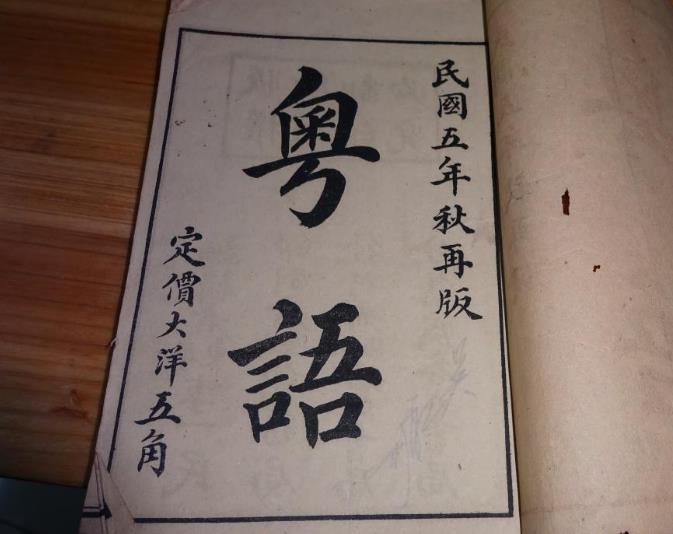 民國五年秋再版
粤語
定價大洋五角